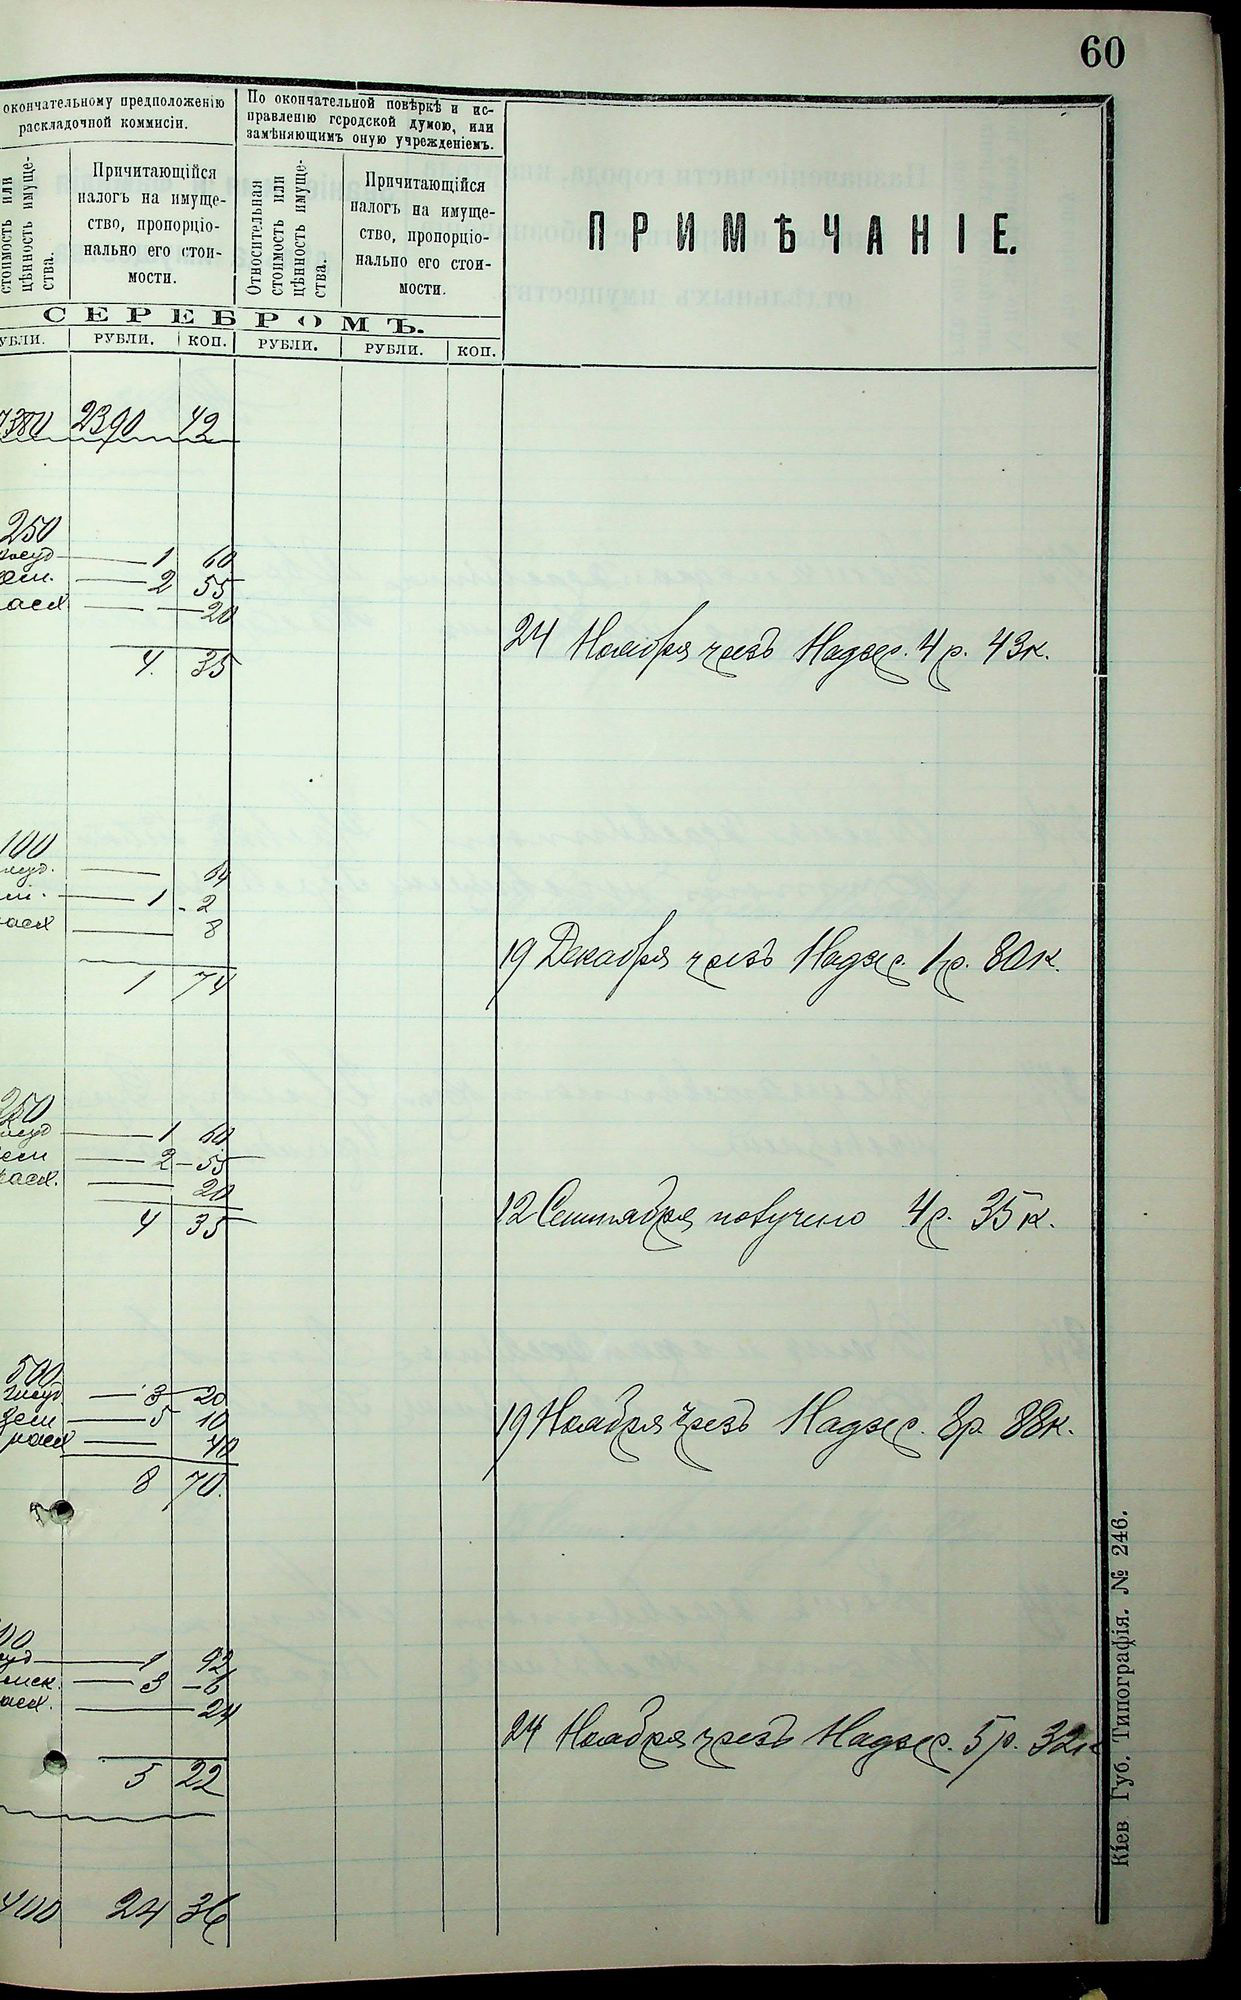 60
окончательному предположенію
раскладочной коммисіи.
По окончательной повѣркѣ и ис-
правленію городской думою, или
замѣняющимъ оную учрежденіемъ.
стоимость или
цѣнность имуще-
ства.
Причитающійся
налогъ на имуще-
ство, пропорціо-
нально его стои-
мости.
Относительная
стоимость или
цѣнность имуще-
ства.
Причитающійся
налогъ на имуще-
ство, пропорціо-
нально его стои-
мости.
ПРИМѢЧАНІЕ.
СЕРЕБРОМЪ.
УБЛИ. РУБЛИ. КОП. РУБЛИ. РУБЛИ. КОП.
7380 2390 42
250
1 60
2 55
20
4. 35
24 Ноября чрезъ Надзер. 4 р. 43к.
100
64
1 - 2
8
1 74
19 Декабря чрезъ Надзер. 1 р. 80к.
250
1 60
2 - 55
20
4 35
12 Сентября получено 4 р. 35к.
500
3 20
5 10
40
8 70.
19 Ноября чрезъ Надзер. 8р. 88к.
00
1 92
3 - 6
24
5 22
24 Ноября чрезъ Надзер. 5 р. 32к
400 24 36
Кіев Губ. Типографія. № 246.